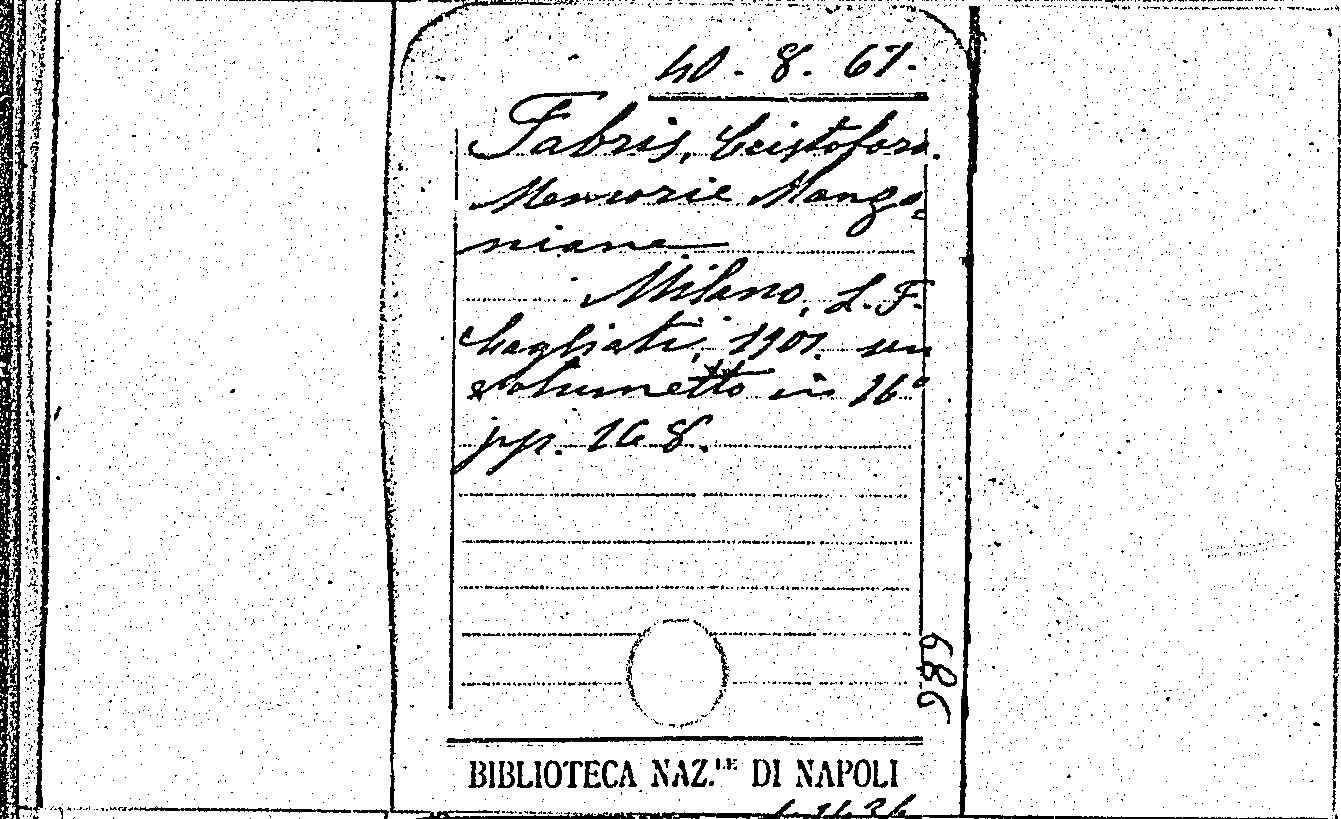 40. 8. 67.
Fabris, Cristoforo.
Memorie Manzo=
niane
Milano, L. F.
Cogliati, 1901. un
volumetto in 16°
pp. 168.
689
BIBLIOTECA NAZ.LE DI NAPOLI